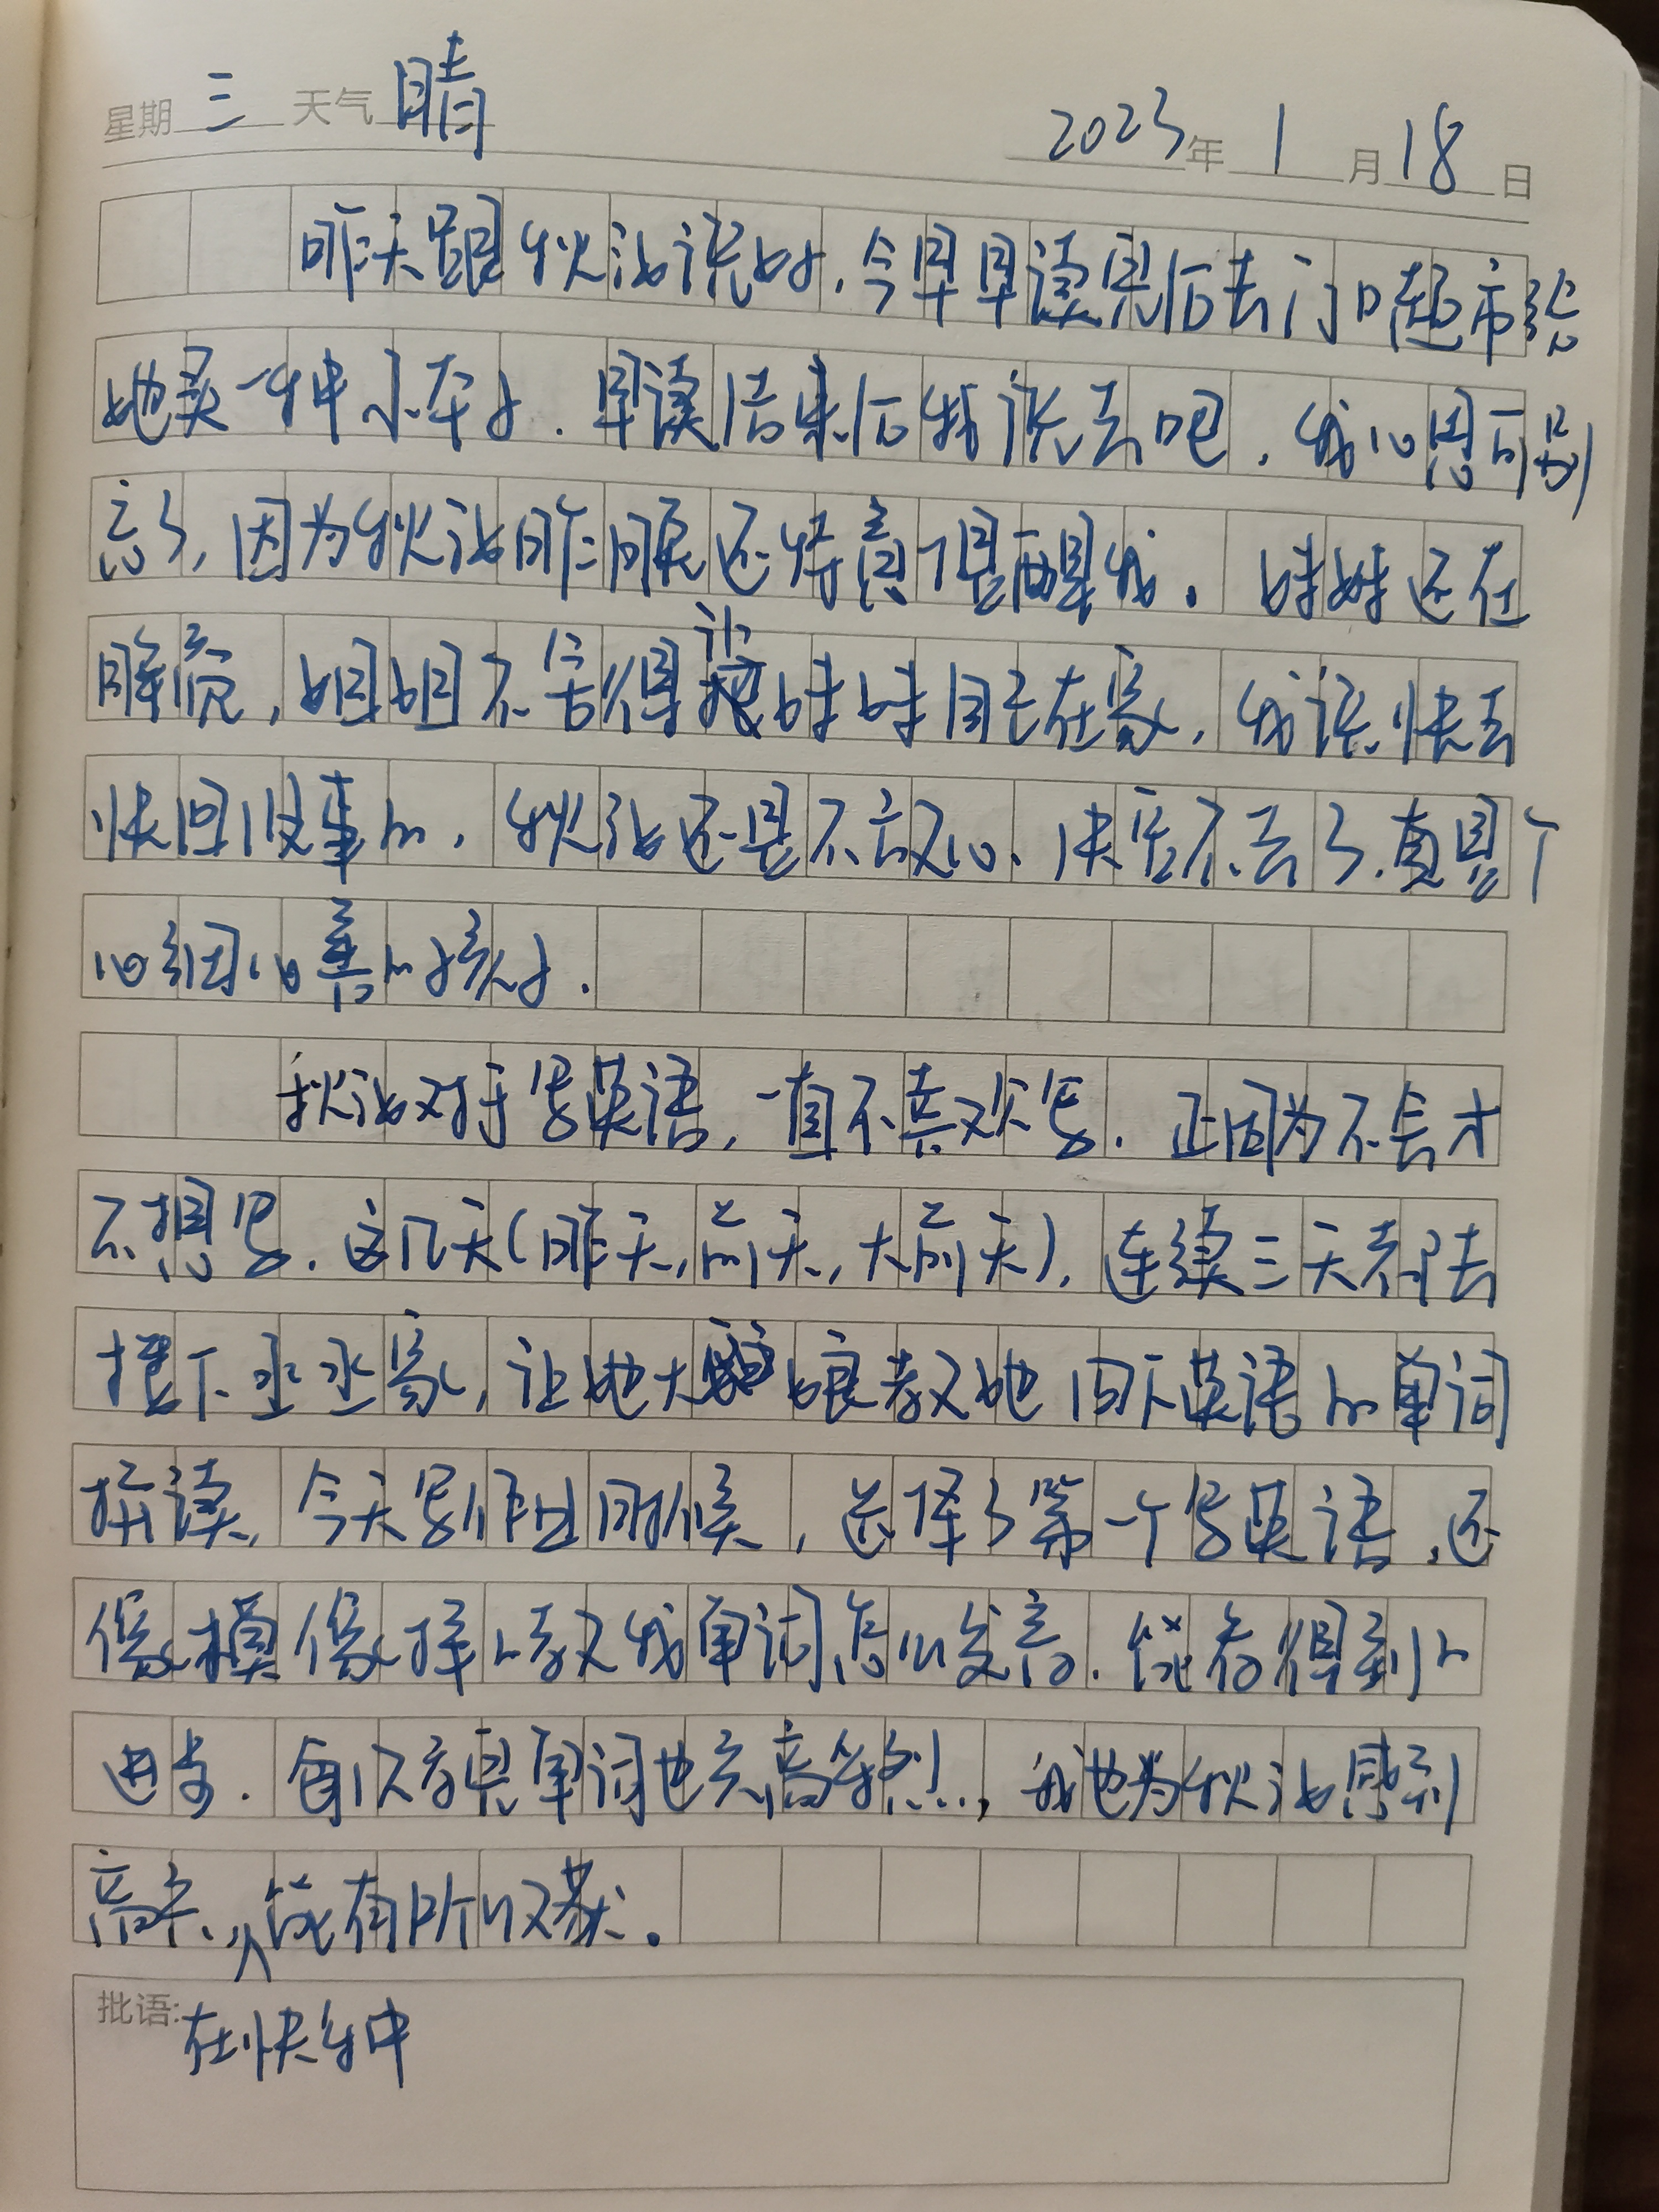 星期 三 天气 晴
2023年 1 月 18 日
昨天跟秋泓说好，今早早读完后去门口超市给
她买一种小车子．早读结束后我说去吧，我心思可别
忘了，因为秋泓昨晚还特意提醒我。妹妹还在
睡觉，姐姐不舍得让妹妹自己在家，我说快去
快回没事的，秋泓还是不放心、决定不去了．真是个
心细心善的好孩子．
秋泓对于写英语，一直不喜欢写．正因为不会才
不想写．这几天（昨天，前天，大前天），连续三天都去
楼下丞丞家，让她大娘教她一下英语的单词
拼读，今天写作业时候，选择了第一个写英语，还
像模像样的教我单词怎么发音．能看得到的
进步．自以为是单词也兴高采烈，我也为秋泓感到
高兴，在快乐中能有所收获。
批语：